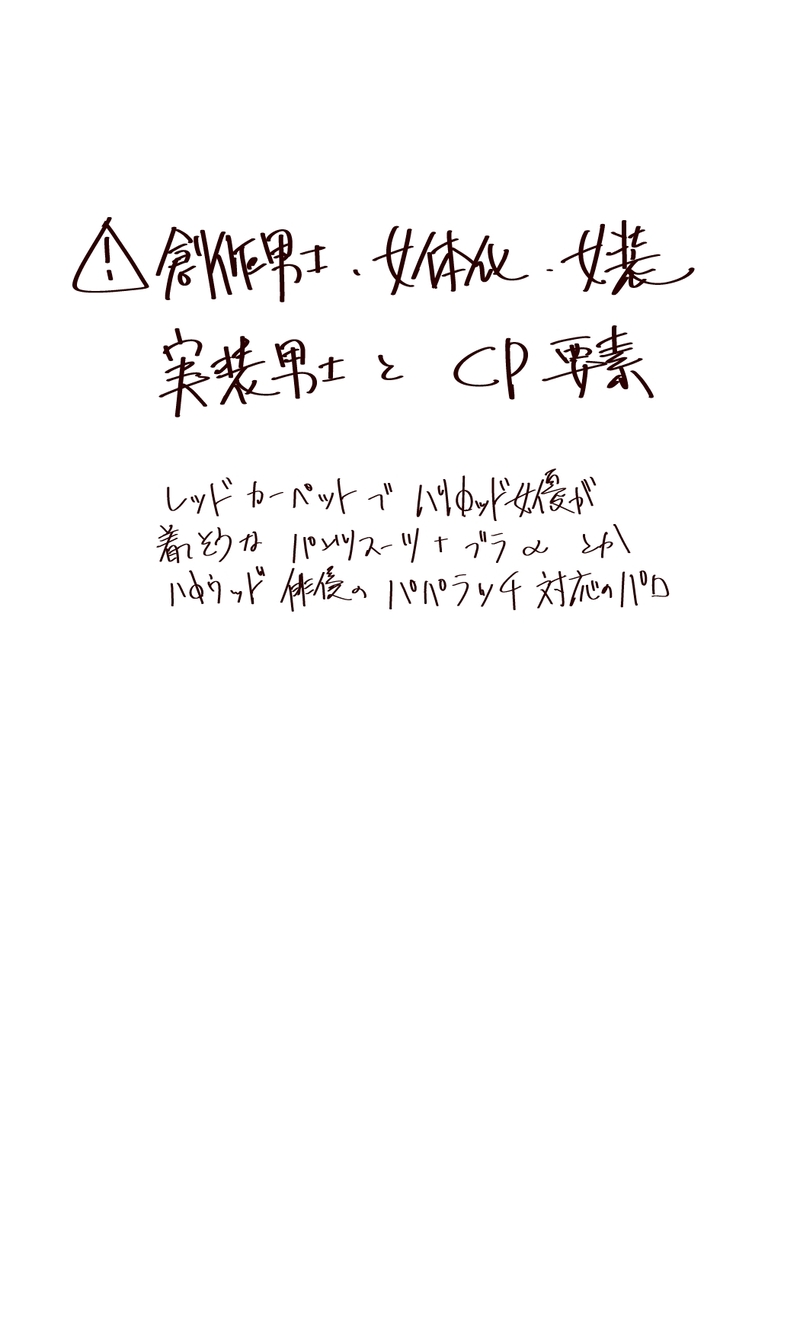 ⚠創作男士、女体化、女装
実装男士とCP要素
レッドカーペットでハリウッド女優が
着てそうな パンツスーツ+ブラ とか
ハリウッド俳優のパパラッチ対応のパロ